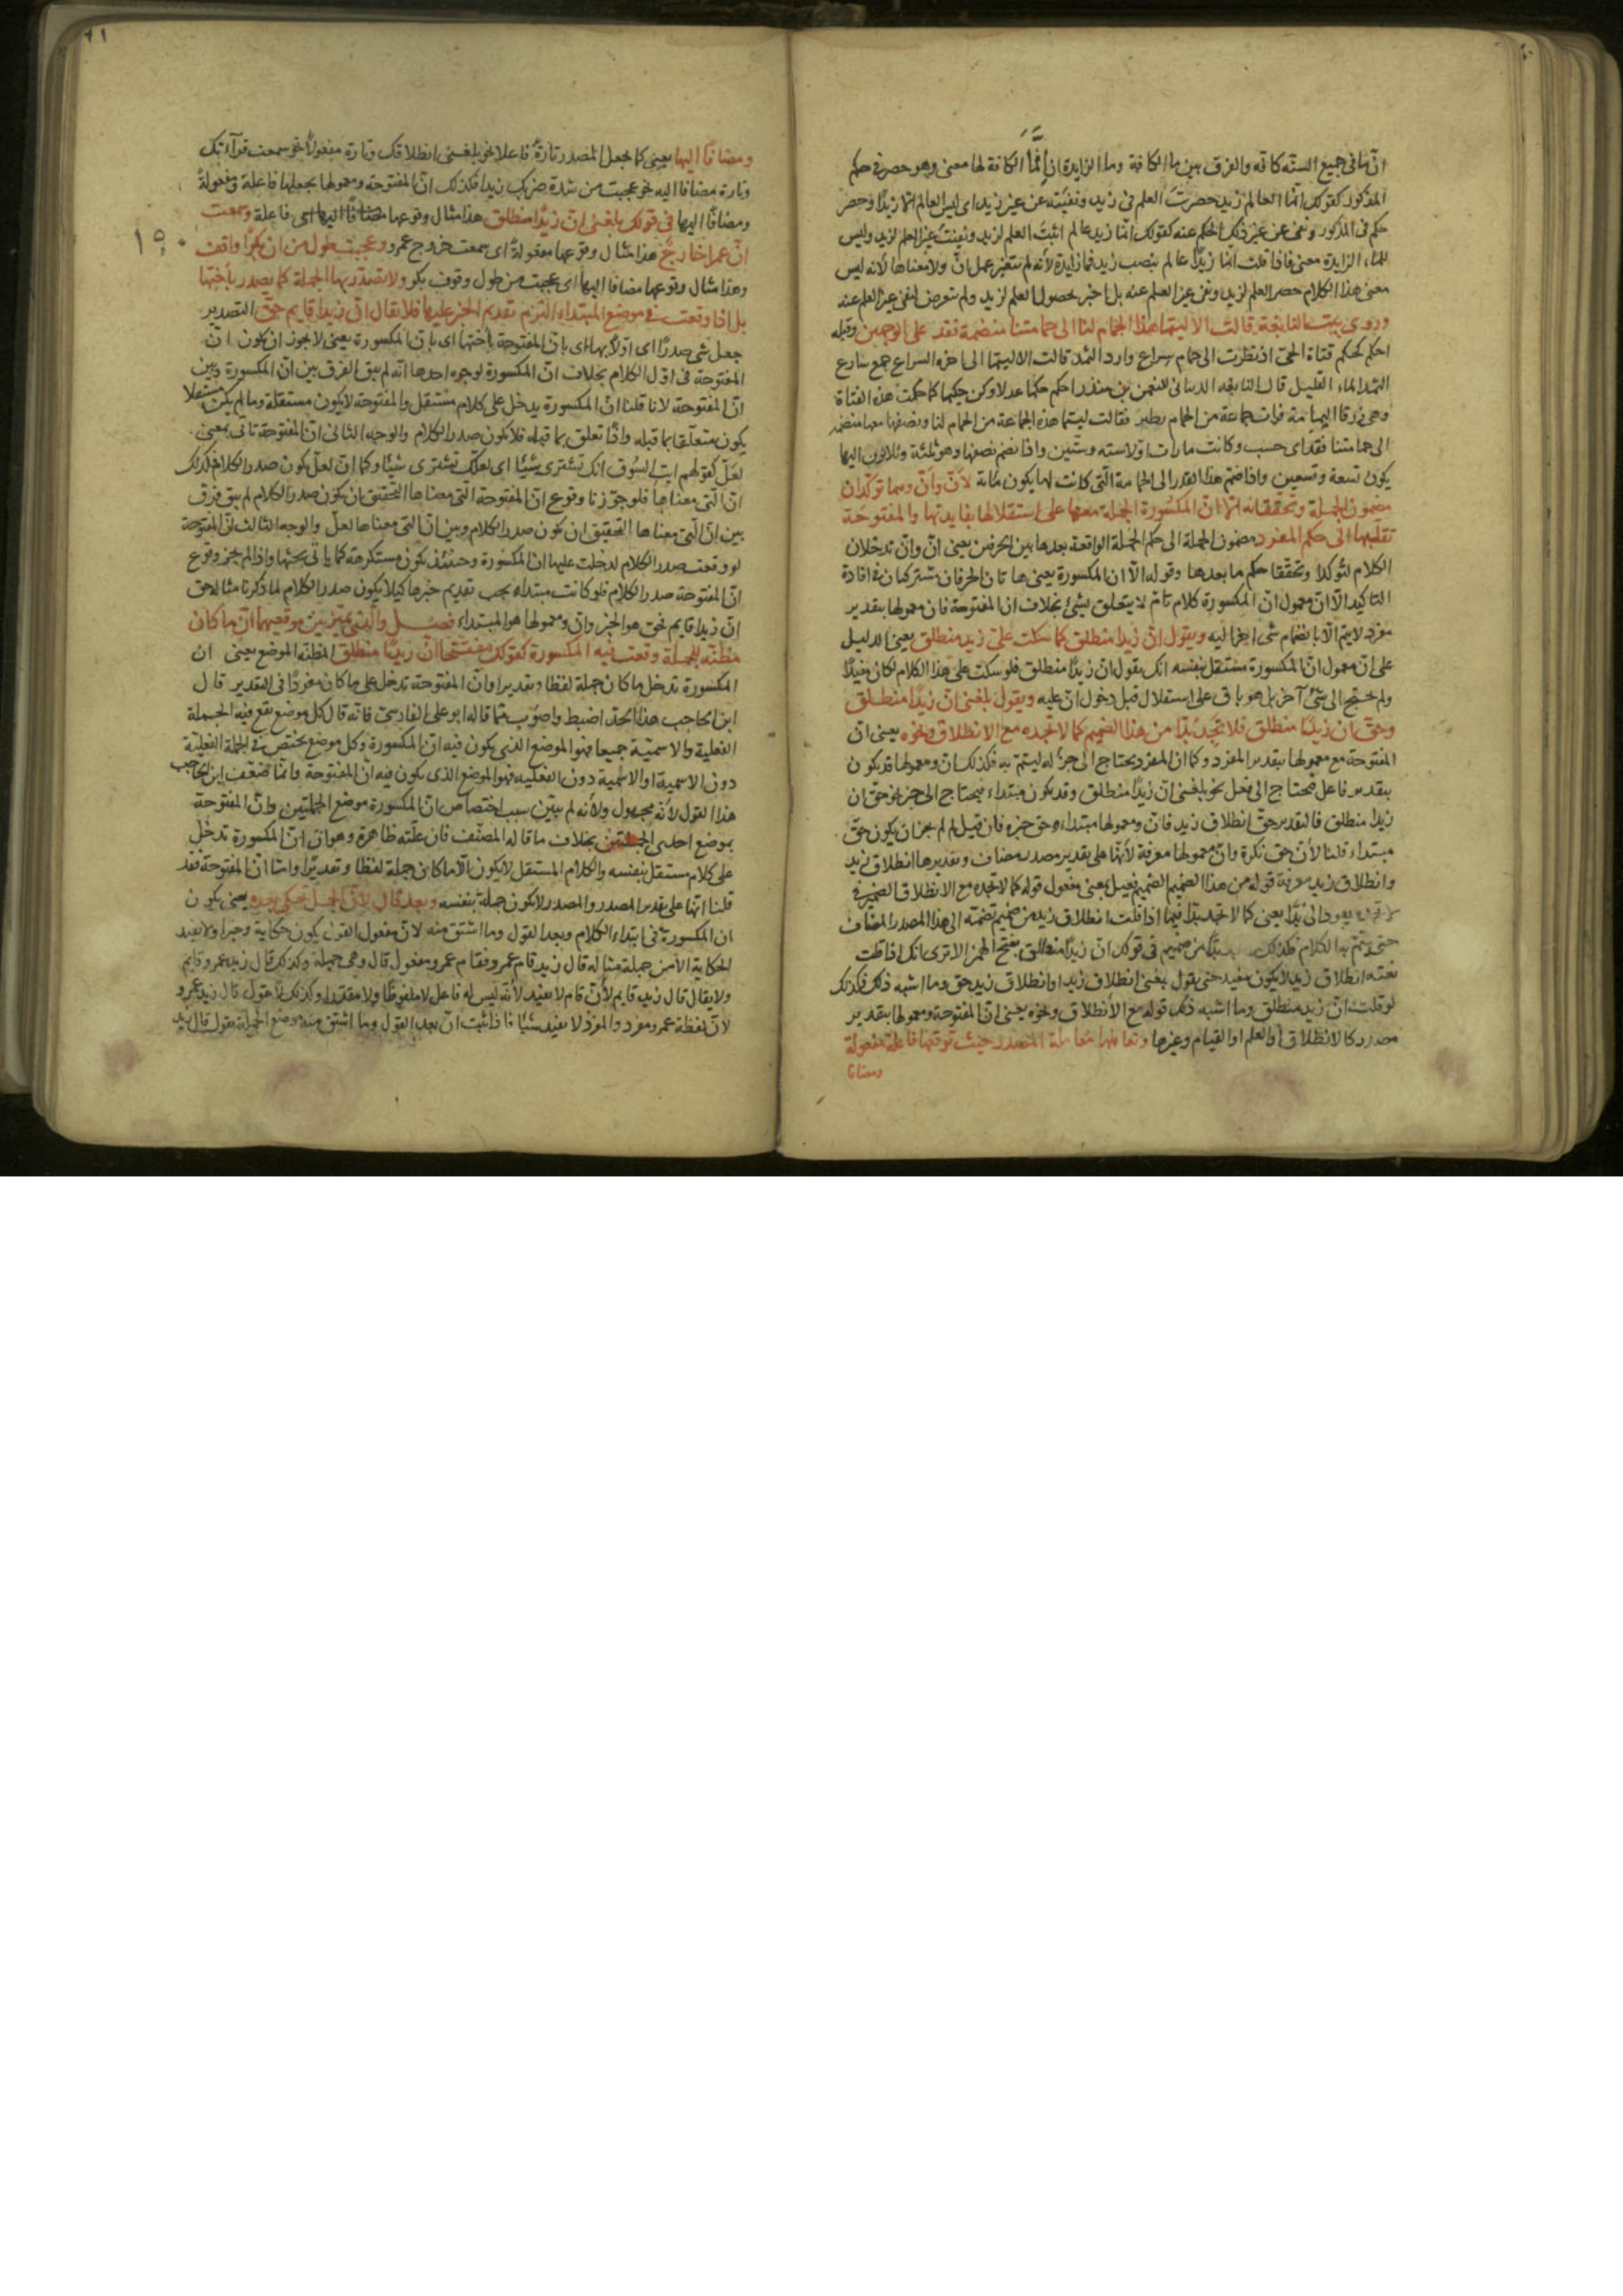 ان ما فى جميع الستّه كافّه والفرق بين ما الكافة وما الزايدة ان إنّما الكافة لها معنى وهو حصر فى حكم
المذكور كقولك انما العالم زيد حصرت العلم فى زيد ونفيته عن غير زيد اى ليس العالم الا زيدًا وحصر
حكم فى المذكور ونفى عن غير ذلك الحكم عنه كقولك انّما زيد عالم اثبتَ العلم لزيد ونفيت غير العلم لزيد وليس
لما الزايدة معنى فاذا قلت انما زيدًا عالم بنصب زيد فما زايدة لأنه لم يتغير عمل انّ ولا معناها لأنه ليس
معنى هذا الكلام حصر العلم لزيد ونفى غير العلم عنه بل اخبر بحصول العلم لزيد ولم يتعرض لنفى غير العلم عنه
وروى بيت النابغة قالت ألا ليتما هذا الحمام لنا الى حمامتنا منضمة فقد على الوجهين وقبله
احكم كحكم فتاة الحىّ اذ نظرت الى حمام سراع وارد الثمد قالت الا ليتما الى اخره السراع جمع سارع
الثمد الماء القليل قال النابغه الذبيانى للنعمن بن منذر احكم حكما عدلا وكن حكيما كما حكمت هذه الفتاة
وهى زرقا اليمامة فرات جماعة من الحمام يطير فقالت ليتما هذه الجماعة من الحمام لنا ونصفها معها منضم
الى حمامتنا فقد اى حسب وكانت ما رات اوّلا سته وستّين واذا نضم نصفها وهو ثلثة وثلاثون اليها
يكون تسعة وتسعين واذا ضمّ هذا القدر الى الحمامة التى كانت لها يكون مائة لأنّ وأنّ وهما توكّدان
مضمون الجملة وتحققانه الا ان المكسُورة الجملة معها على استقلالها بفايدتها والمفتوحة
تقلبها الى حكم المفرد مضمون الجملة الى حكم الجملة الواقعة بعدها بين الحرفين يعنى انّ وانّ تدخلان
الكلام لتؤكدا وتحققا حكم ما بعدها وقوله الّا ان المكسورة يعنى هاتان الحرفان تشتركان فى افادة
التاكيد الّا ان معمول انّ المكسورة كلام تامّ لا يتعلق بشئ بخلاف ان المفتوحة فان معمولها بتقدير
مفرد لا يتم الّا بانضمام شئ اخر اليه ويقول انّ زيدا منطلق كما سكت على زيد منطلق يعنى الدليل
على ان معمول انّ المكسورة مستقل بنفسه انك تقول انّ زيدًا منطلق فلو سكت على هذا الكلام لكان مفيدًا
ولم يحتج الى شئ آخر بل هو باق على استقلال قبل دخول انّ عليه ويقول بلغنى انّ زيدًا منطلق
وحقّ ان زيدًا منطلق فلا تجد بدّا من هذا الضميم كما لا تجده مع الانطلاق ونحوه يعنى انّ
المفتوحة مع معمولها بتقدير المفرد وكما ان المفرد يحتاج الى جزء له ليتمّ به فكذلك ان ومعمولها قد يكون
بتقدير فاعل فيحتاج الى فعل نحو بلغنى انّ زيدًا منطلق وقد يكون مبتداء فيحتاج الى خبر نحو حق ان
زيدًا منطلق فالتقدير حقّ انطلاق زيد فانّ ومعمولها مبتداء وحق خبره فان قيل لم لم يجز ان يكون حقّ
مبتداء قلنا لأن حق نكرة وانّ معمولها معرفة لأنّها على تقدير مصدر مضاف وتقديرها انطلاق زيد
وانطلاق زيد معرفة قوله من هذا الضميم الضميم فعيل بمعنى مفعول قوله كما لا تجده مع الانطلاق الضمير فى
لا تجده يعود الى بدًّا يعنى كما لا تجد بدّا فيما اذا قلت انطلاق زيد من ضميم تضمه الى هذا المصدر المضاف
حتى يتم به الكلام فكذلك بدّا من ضميم فى قولك انّ زيدًا منطلق بفتح الهمز الا ترى انك اذا قلت
انطلاق زيد لا يكون مفيد حتى تقول بلغنى انطلاق زيد او انطلاق زيد حق وما اشبه ذلك فكذلك
لو قلت انّ زيد منطلق وما اشبه ذلك قوله مع الأنطلاق ونحوه يعنى ان المفتوحة ومعمولها بتقدير
مصدر كالانطلاق او العلم او القيام وغيرها وتعاملها معاملة المصدر حيث توقعها فاعلة مفعولة
ومضافا
٤١
ومضافًا اليها يعنى كما يجعل المصدر تارة فاعلا نحو بلغنى انطلاقك وتارة مفعولاً نحو سمعت قرآءتك
وتارة مضافا اليه نحو عجبت من شدة ضربك زيدا فكذلك انّ المفتوحة ومعمولها يجعلها فاعلة ومفعولةً
ومضافًا اليها فى قولك بلغنى انّ زيدًا منطلق هذا مثال وقوعها فاعلة وسمعت
انّ عمرا خارجٌ هذا مثال وقوعها مفعولةً اى سمعت خروج عمرو وعجبت من طول ان بكرًا واقف
١٥٠
وهذا مثال وقوعها مضافا اليها اى عجبت من طول وقوف بكر ولا تصدّر بها الجملة كما يصدر باختها
بل اذا وقعت فى موضع المبتداء التزم تقديم الخبر عليها فلا يقال انّ زيدًا قايم حقّ التصدير
جعل شى صدرًا اى اوّلاً بها اى بانّ المفتوحة باختها اى بانّ المكسورة يعنى لا يجوز ان يكون انّ
المفتوحة فى اوّل الكلام بخلاف انّ المكسورة لوجوه احدها انّه لم يبق الفرق بين انّ المكسورة وبين
انّ المفتوحة لانا قلنا انّ المكسورة يدخل على كلام مستقل والمفتوحة لا يكون مستقلة وما لم يكن مستقلا
يكون متعلّقا بما قبله واذا تعلق بما قبله فلا يكون صدر الكلام والوجه الثانى انّ المفتوحة تاتى بمعنى
لعلّ كقولهم ايت السُوق انّك تشترى شيئًا اى لعلّك تشترى شيئًا وكما انّ لعلّ يكون صدر الكلام فكذلك
انّ الّتى معناها فلو جوّزنا وقوع انّ المفتوحة التى معناها التحقيق ان يكون صدر الكلام لم يبق فرق
بين انّ الّتى معناها التحقيق ان يكون صدر الكلام وبين انّ التى معناها لعلّ والوجه الثالث انّ المفتوحة
لو وقعت صدر الكلام لدخلت عليها انّ المكسورة وحينئذ يكون مستكرهة كما ياتى بحثها واذا لم يجز وقوع
انّ المفتوحة صدر الكلام فلو كانت مبتداء يجب تقديم خبرها كيلا يكون صدر الكلام لما ذكرنا مثاله حق
انّ زيدا قايم فحق هو الخبر وانّ ومعمولها هو المبتداء فصل والّذى يميّز بين موقعيهما أنّ ما كان
مظنّه للجملة وقعت فيه المكسورة كقولك مفتتحا انّ زيدًا منطلق المظنّه الموضع يعنى ان
المكسورة تدخل ما كان جملة لفظا وتقديرا وانّ المفتوحة تدخل على ما كان مفردًا فى التقدير قال
ابن الحاجب هذا الحدّ اضبط واصوب مما قاله ابو على الفارسىّ فانّه قال كل موضع يقع فيه الجملة
الفعلية والاسميّة جميعا فهو الموضع الذى يكون فيه انّ المكسورة وكل موضع يختص فى الجملة الفعليّة
دون الاسميّة او الاسمية دون الفعليه فهو الموضع الذى يكون فيه انّ المفتوحة وانّما ضعّف ابن الحاجب
هذا القول لأنه مجهول ولأنه لم يبيّن سبب اختصاص انّ المكسورة موضع الجملتين وانّ المفتوحة
بموضع احدى الجملتين بخلاف ما قاله المصنّف فان علّته ظاهرة وهو ان انّ المكسورة تدخل
على كلام مستقل بنفسه والكلام المستقل لا يكون الّا ما كان جملة لفظا وتقديرًا واما انّ المفتوحة فقد
قلنا انّها على تقدير المصدر والمصدر لا يكون جملة بنفسه وبعد قال لأنّ الجمل تحكى بعده يعنى يكون
ان المكسورة فى ابتداء الكلام وبعد القول وما اشتق منه لانّ مفعول القول يكون حكاية وخبرا ولا تفيد
الحكاية الّا من جملة مثاله قال زيد قام عمرو فقام عمرو مفعول قال وهى جملة وكذلك قال زيد عمرو قايم
ولا يقال قال زيد قايم لأن قام لا يفيد لأنّه ليس له فاعل لا ملفوظًا ولا مقدّرا وكذلك لا تقول قال زيد عمرو
لانّ لفظة عمرو مفرد والمفرد لا يفيد شيئا فاذا ثبت انّ بعد القول وما اشتق منه موضع الجملة تقول قال زيد